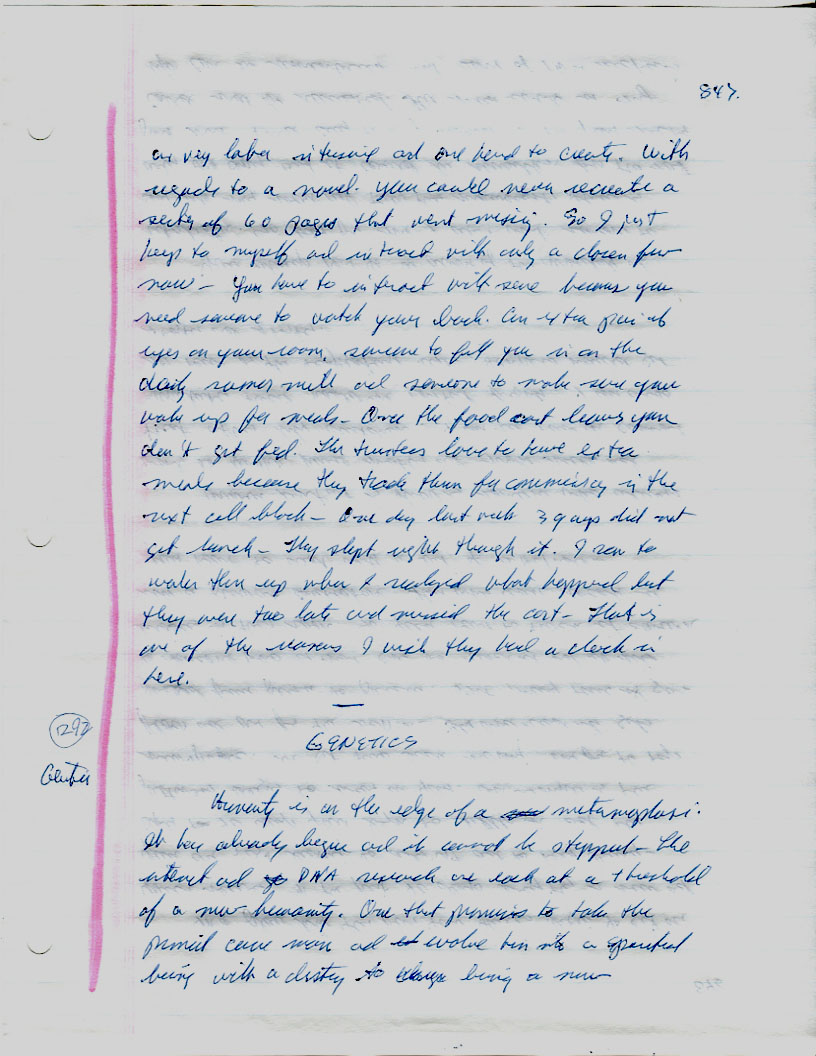 847.
are very labor intensive and are hard to create. With
regards to a novel. You could never recreate a
section of 60 pages that went missing. So I just
keep to myself and interact with only a chosen few
now - You have to interact with some because you
need someone to watch your back. An extra pair of
eyes on your room, someone to fill you in on the
daily rumor mill and someone to make sure you
wake up for meals - Once the food cart leaves you
don't get fed. The trustees love to have extra
meals because they trade them for commissary in the
next cell block - One day last week 3 guys did not
get lunch - They slept right through it. I ran to
wake them up when I realized what happened but
they were too late and missed the cart - That is
one of the reasons I wish they had a clock in
here.
GENETICS
1292
Genetics
Humanity is on the edge of a metamorphosis.
It has already begun and it cannot be stopped - The
internet and DNA research are each at a threshold
of a new humanity. One that promises to take the
cave man and evolve him into a spiritual
being with a destiny to being a new